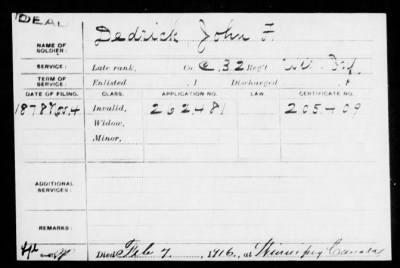 DEAL
NAME OF SOLDIER: Dedrick, John F.
SERVICE: Late rank, Co. C, 32 Reg't Wis. Inf.
TERM OF SERVICE: Enlisted , 1 Discharged , 1
DATE OF FILING. CLASS. APPLICATION NO. CERTIFICATE NO.
1878 Oct. 4 Invalid, 262481 205409
Widow,
Minor,
ADDITIONAL SERVICES:
REMARKS:
Died Feb 7, 1916, at Winnipeg Canada